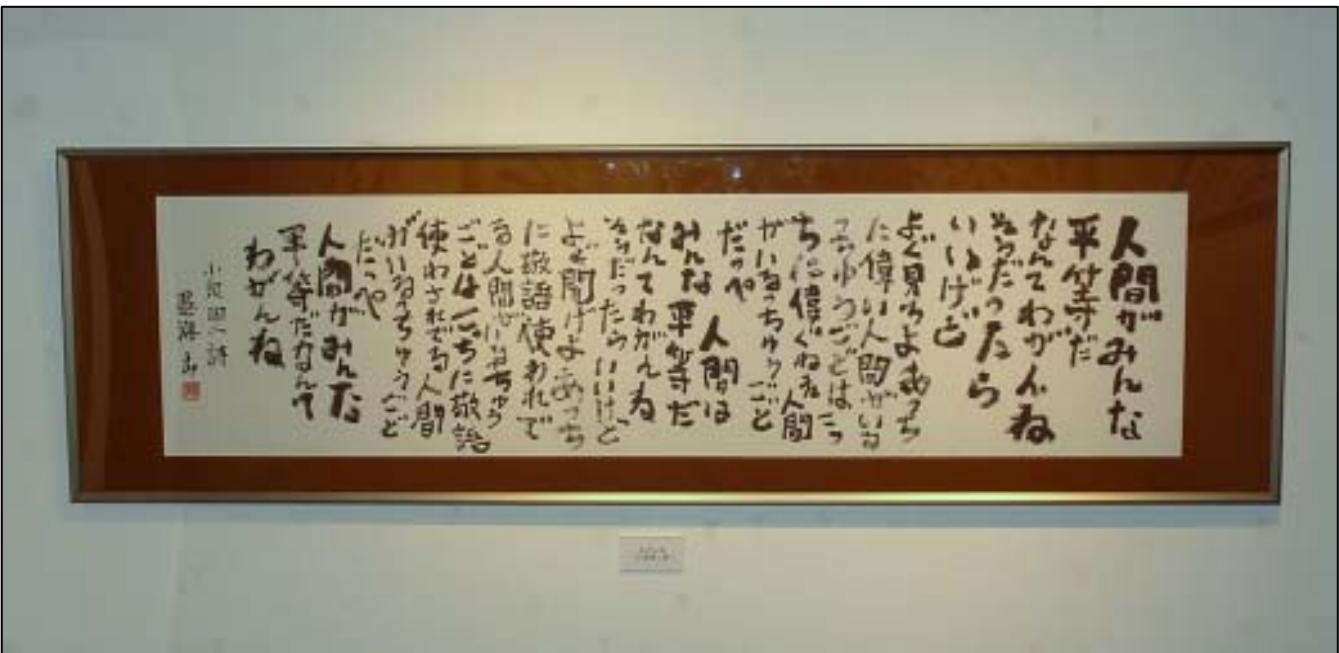 人間がみんな
平等だ
なんてわがんね
そうだったら
いいけど
よぐ見ろよあっち
に偉い人間がいる
つちゅうごどはこっ
ちに偉ぐねえ人間
がいるっちゅうごど
だっぺ
人間は
みんな平等だ
なんてわがんね
そうだったらいいけど
よぐ聞げよあっち
に敬語使われで
る人間がいるっちゅう
ごどはこっちに敬語
使わされでる人間
がいるっちゅうごど
だっぺ
人間がみんな
平等だなんて
わがんね